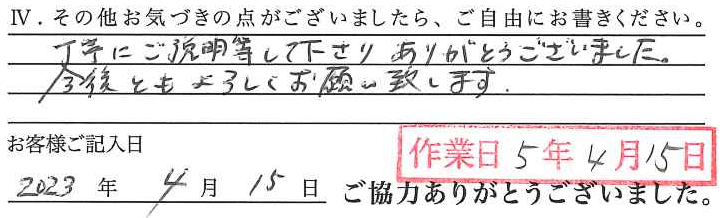 Ⅳ．その他お気づきの点がございましたら、ご自由にお書きください。
丁寧にご説明等して下さり ありがとうございました。
今後ともよろしくお願い致します.
お客様ご記入日
作業日 5年4月15日
2023 年 4 月 15 日 ご協力ありがとうございました。